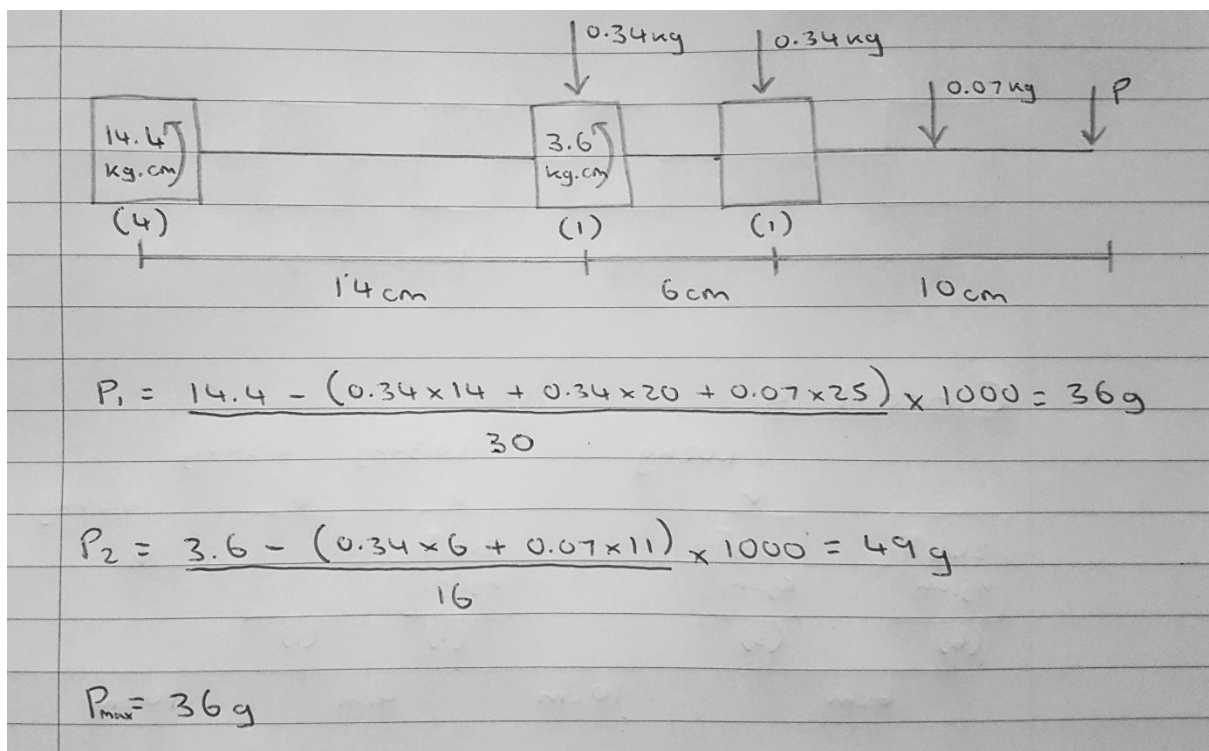 0.34kg 0.34kg
0.07kg P
14.4 3.6
kg.cm kg.cm
(4) (1) (1)
14cm 6cm 10cm
P₁ = 14.4 - (0.34×14 + 0.34×20 + 0.07×25) × 1000 = 36g
30
P₂ = 3.6 - (0.34×6 + 0.07×11) × 1000 = 49g
16
Pmax = 36g